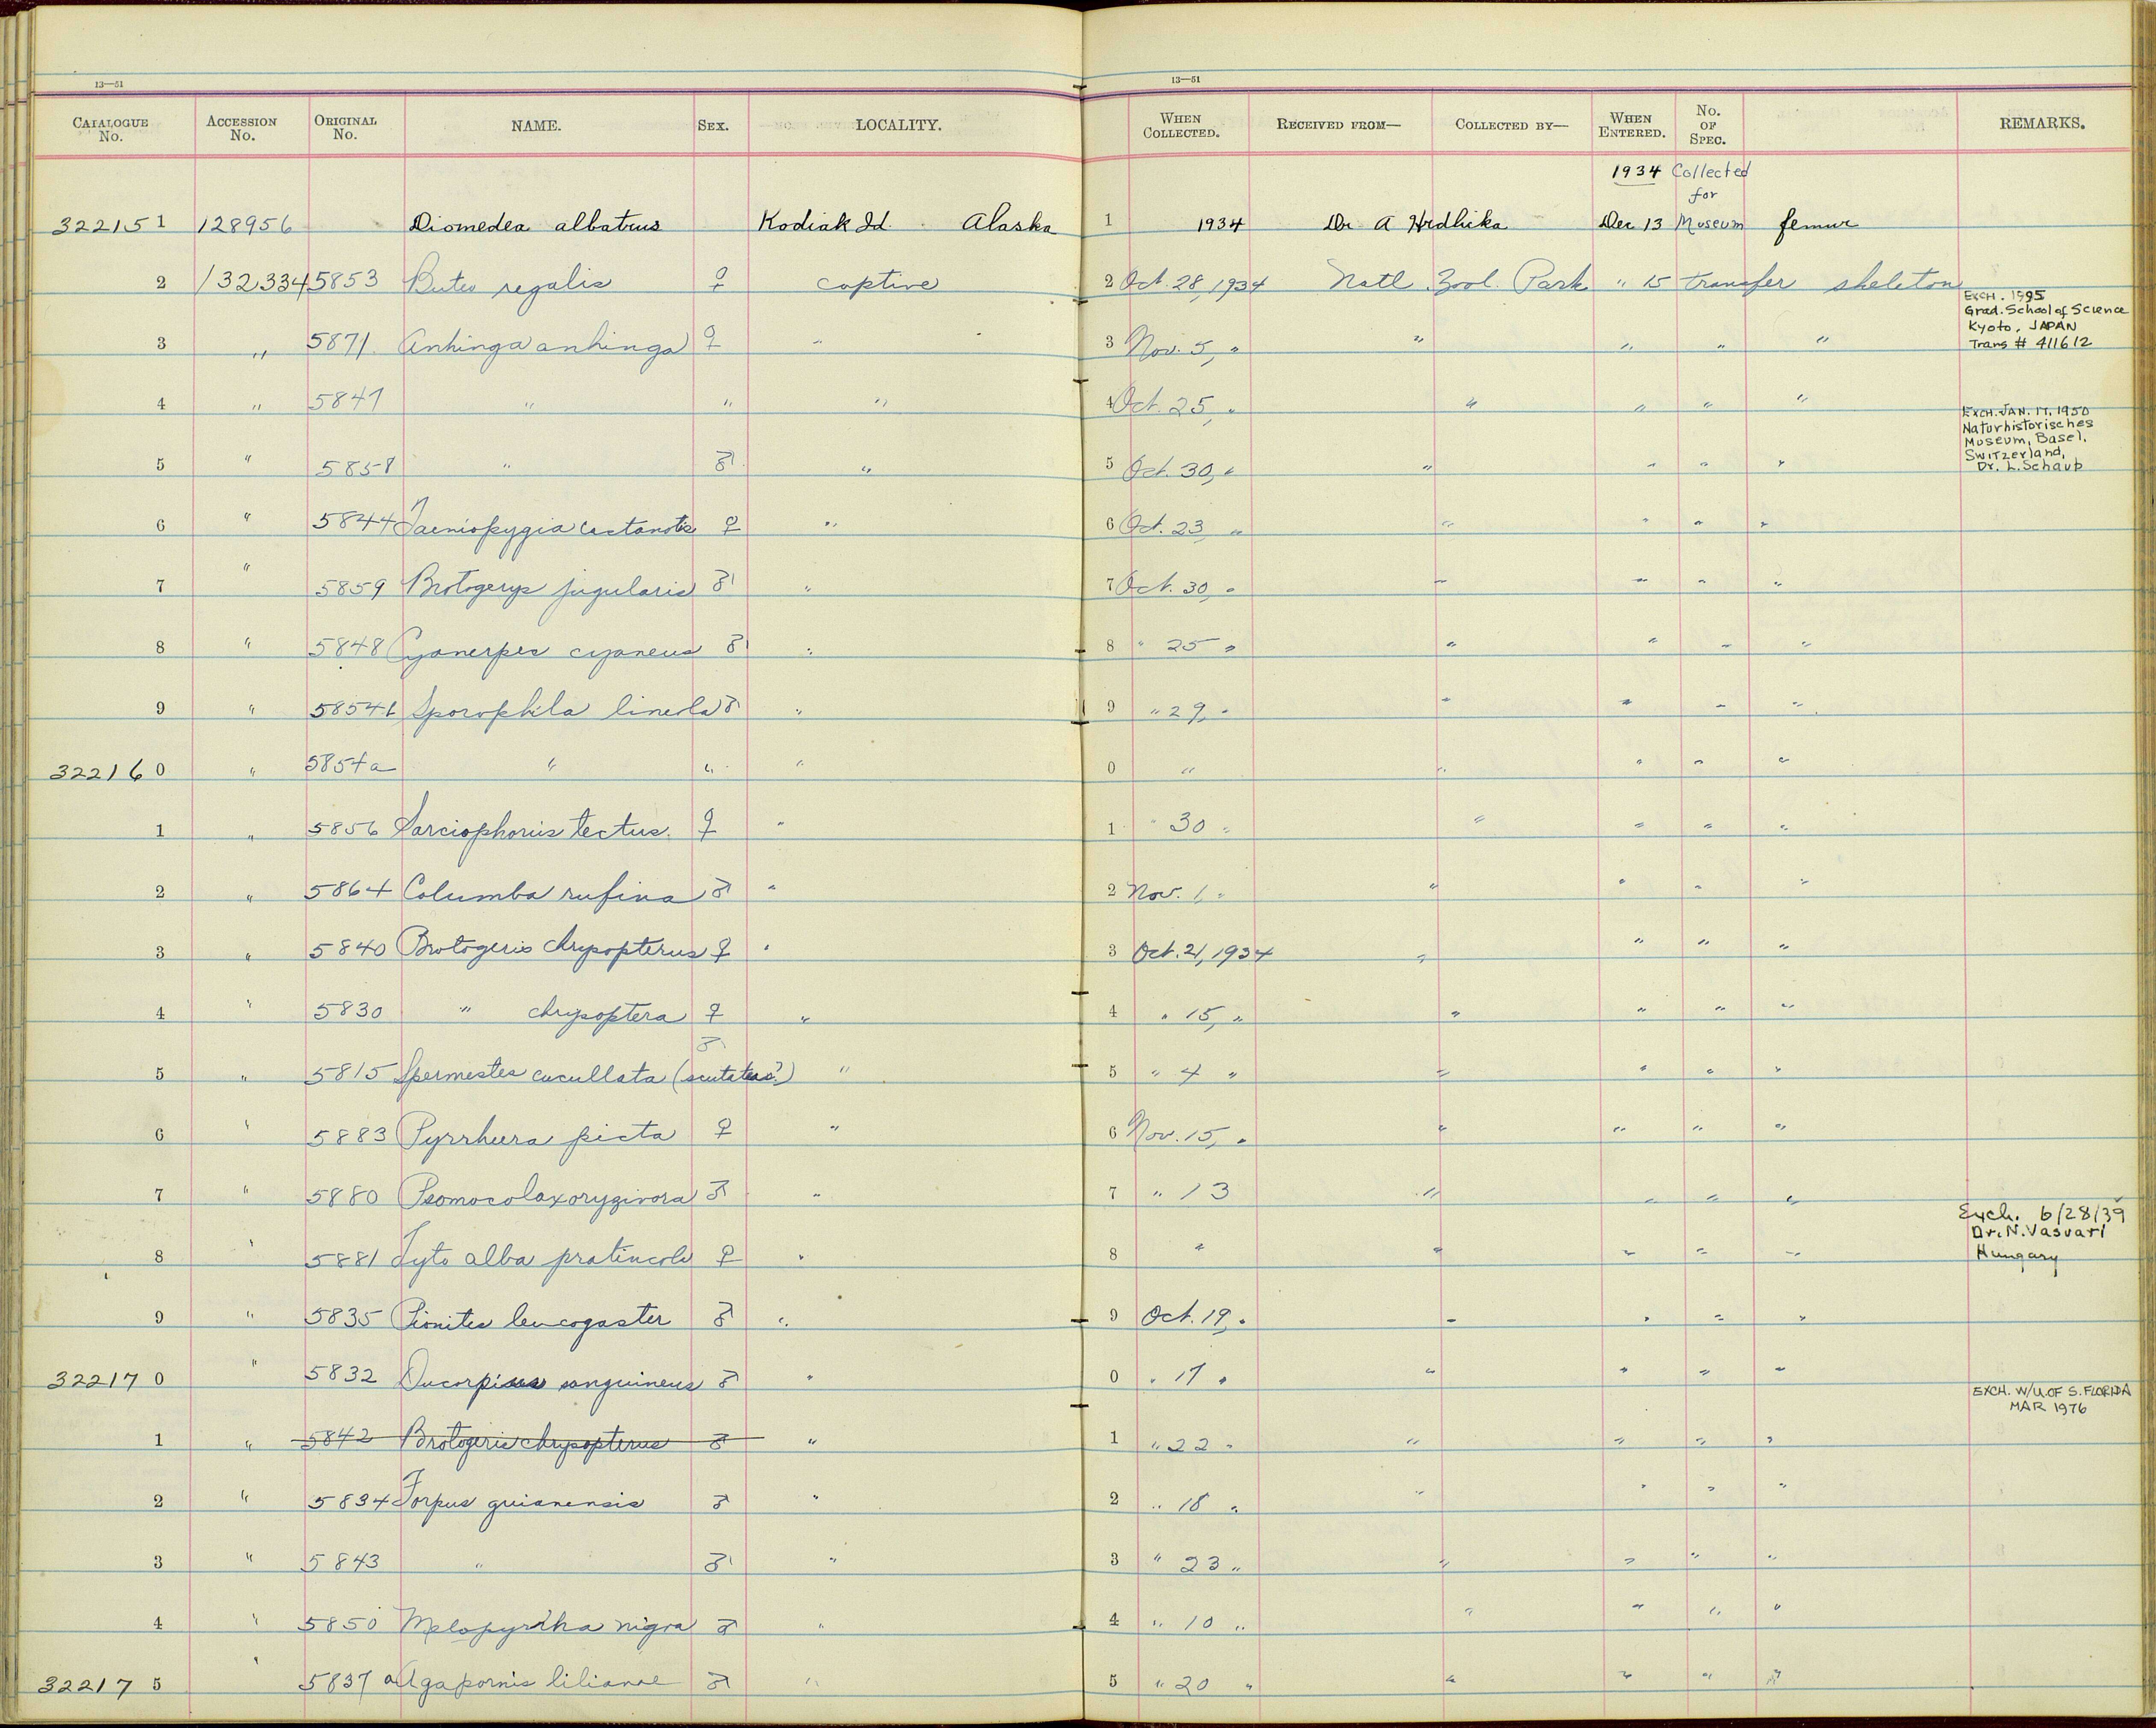 13—51
13—51
CATALOGUE No. ACCESSION No. ORIGINAL No. NAME. SEX. LOCALITY. WHEN COLLECTED. RECEIVED FROM— COLLECTED BY— WHEN ENTERED. No. OF SPEC. REMARKS.
1934 Collected for
322151 128956 Diomedea albatrus Kodiak Id. Alaska 1 1934 Dr A Hrdlicka Dec 13 Museum femur
2 132,334 5853 Buteo regalis ♀ captive 2 Oct. 28, 1934 Natl. Zool. Park " 15 transfer skeleton
Exch. 1995
Grad. School of Science
Kyoto, JAPAN
3 " 5871 Anhinga anhinga ♀ " 3 Nov. 5, " " " " " Trans # 411612
4 " 5847 " " " 4 Oct. 25, " " " " "
Exch. JAN. 17, 1950
Naturhistorisches
Museum, Basel,
Switzerland,
5 " 5858 " ♂ " 5 Oct. 30, " " " " " Dr. L. Schaub
6 " 5844 Taeniopygia castanotis ♀ " 6 Oct. 23, " " " " "
7 " 5859 Brotogerys jugularis ♂ " 7 Oct. 30, " " " " "
8 " 5848 Cyanerpes cyaneus ♂ " 8 " 25 " " " " "
9 " 5854b Sporophila lineola ♂ " 9 " 29, " " " " "
322160 " 5854a " " " 0 " " " " "
1 " 5856 Sarciophorus tectus. ♀ " 1 " 30 " " " " "
2 " 5864 Columba rufina ♂ " 2 Nov. 1 " " " " "
3 " 5840 Brotogeris chrysopterus ♀ " 3 Oct. 21, 1934 " " " "
4 " 5830 " chrysoptera ♀ " 4 " 15, " " " " "
♂
5 " 5815 Spermestes cucullata (scutatus?) " 5 " 4 " " " " "
6 " 5883 Pyrrhura picta ♀ " 6 Nov. 15, " " " " "
7 " 5880 Psomocolax oryzivora ♂ " 7 " 13 " " " "
Exch. 6/28/39
Dr. N. Vasvari
8 " 5881 Tyto alba pratincola ♀ " 8 " " " " " Hungary
9 " 5835 Pionites leucogaster ♂ " 9 Oct. 19, " " " " "
322170 " 5832 sanguineus ♂ " 0 " 17 " " " " "
EXCH. W/U. OF S. FLORIDA
MAR 1976
1 " 5842 Brotogeris chrysopterus ♂ " 1 " 22 " " " " "
2 " 5834 Forpus guianensis ♂ " 2 " 18 " " " " "
3 " 5843 " ♂ " 3 " 23 " " " " "
4 " 5850 Melopyrrha nigra ♂ " 4 " 10 " " " " "
322175 " 5837 Agapornis lilianae ♂ " 5 " 20 " " " " "